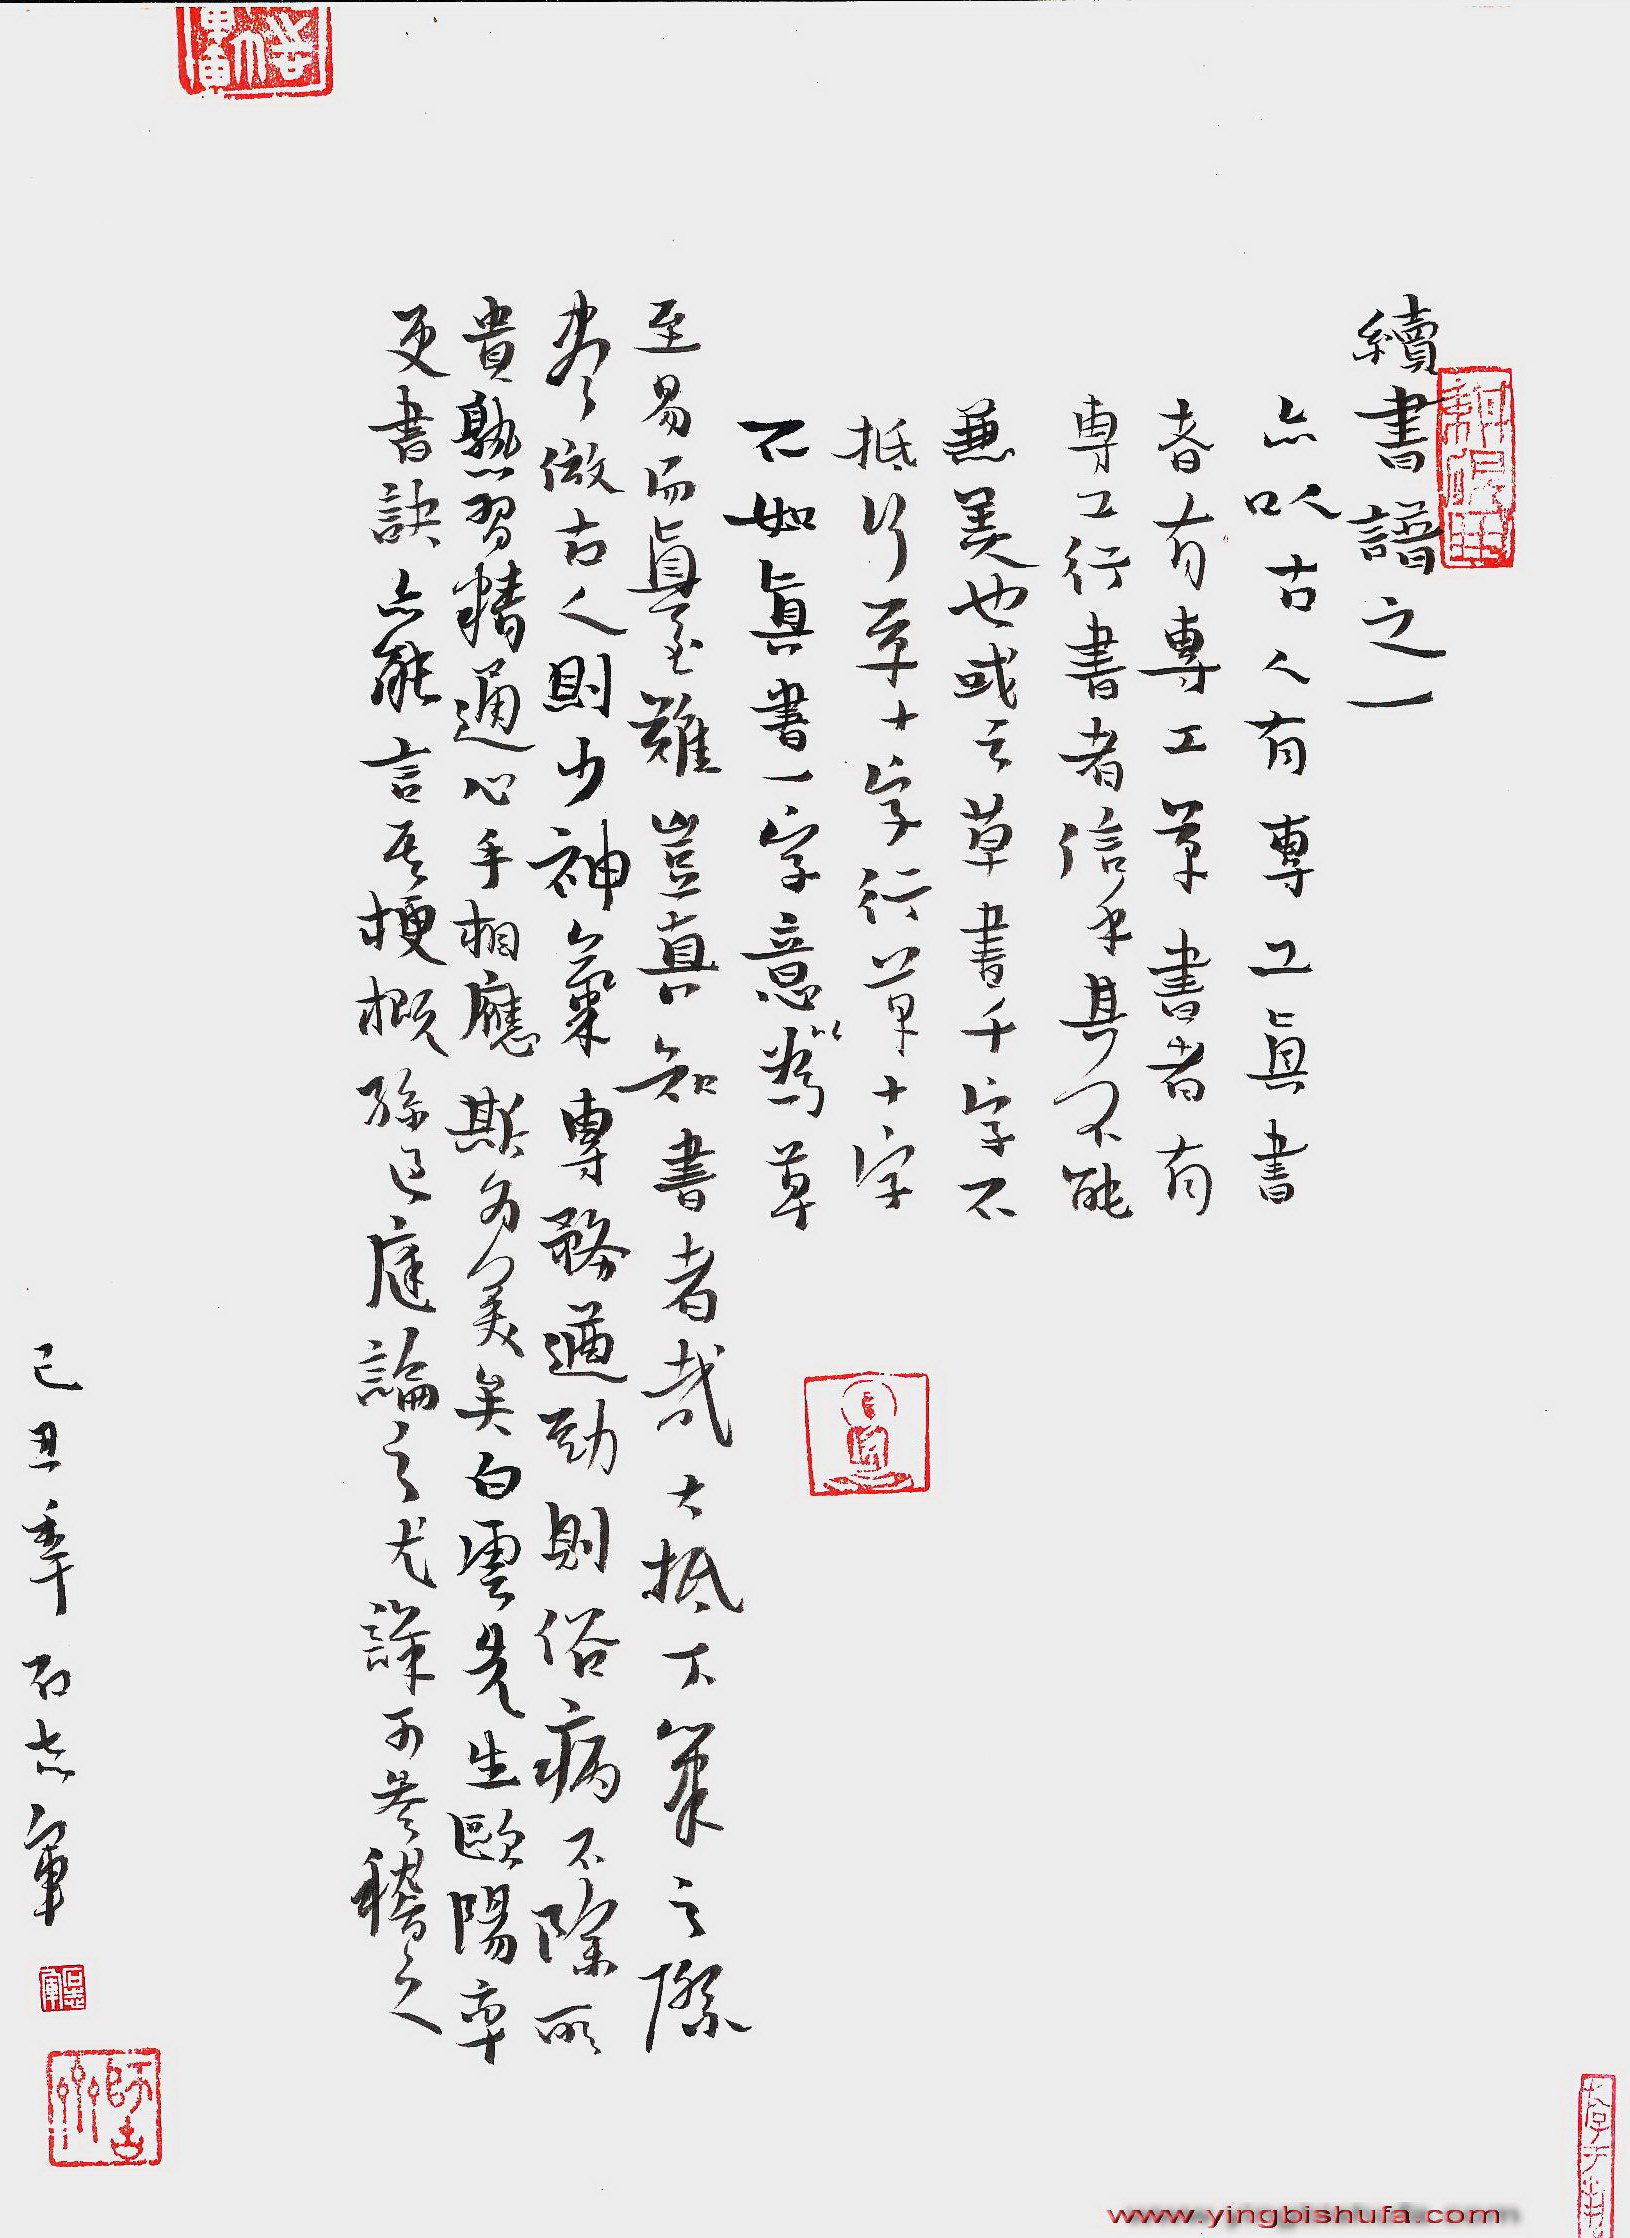 續書譜之一
亦以古人有專工眞書
者有專工草書者有
專工行書者信乎其不能
兼美也或云草書千字不
抵行草十字行草十字
不如眞書一字意以爲草
至易而眞至難豈真知書者哉大抵下筆之際
盡倣古人則少神氣專務遒勁則俗病不除所
貴熟習精通心手相應斯爲美矣白雲先生歐陽率
更書訣亦能言其梗概孫過庭論之尤詳可參稽之
己丑秊石志軍
石志軍
師古
www.yingbishufa.com